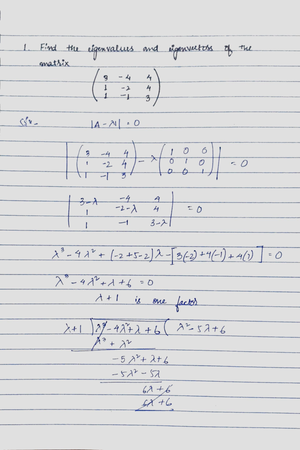 1. Find the eigenvalues and eigenvectors of the
matrix
( 3 -4 4
1 -2 4
1 -1 3 )
|A - λI| = 0
| ( 3 -4 4
1 -2 4
1 -1 3 ) - λ ( 1 0 0
0 1 0
0 0 1 ) | = 0
| 3-λ -4 4
1 -2-λ 4
1 -1 3-λ | = 0
λ³ - 4λ² + (-2+5-2)λ - [3(-2)+4(-1)+4(1)] = 0
λ³ - 4λ² + λ + 6 = 0
λ+1 is one factor
λ+1 ) λ³ - 4λ² + λ + 6 ( λ² - 5λ + 6
λ³ + λ²
-5λ² + λ + 6
-5λ² - 5λ
6λ + 6
6λ + 6